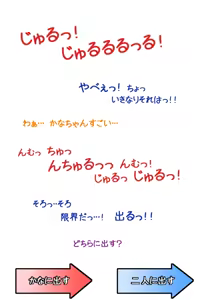 じゅるっ!
じゅるるるっる!
やべぇっ! ちょっ
いきなりそれはっ!!
わぁ… かなちゃんすごい…
んむっ ちゅっ
んちゅるっっ んむっ!
じゅるっ じゅるっ!
そろっ…そろ
限界だっ…! 出るっ!!
どちらに出す?
かなに出す
二人に出す